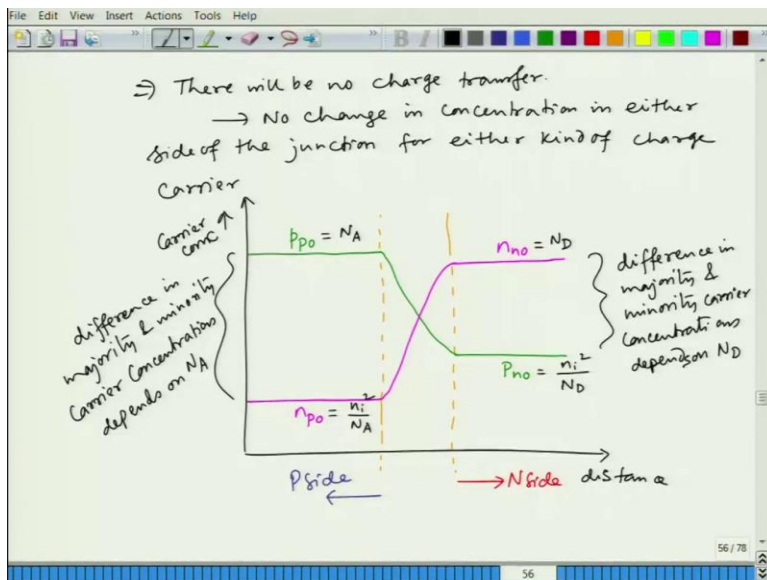 File Edit View Insert Actions Tools Help
⇒ There will be no charge transfer.
→ No change in concentration in either
side of the junction for either kind of charge
carrier
Carrier
conc
p_po = N_A
n_no = N_D
difference in
majority & minority
carrier concentrations
depends on N_A
difference in
majority &
minority carrier
concentrations
depends on N_D
n_po = n_i^2/N_A
P_no = n_i^2/N_D
P side
←
→ N side
distance
56 / 78
56